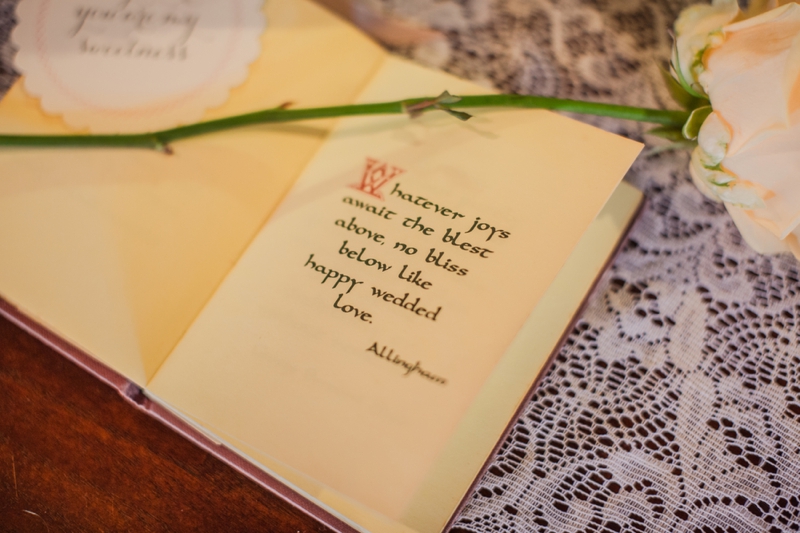 you're my
sweetness
Whatever joys
await the blest
above, no bliss
below like
happy wedded
love.
Allingham